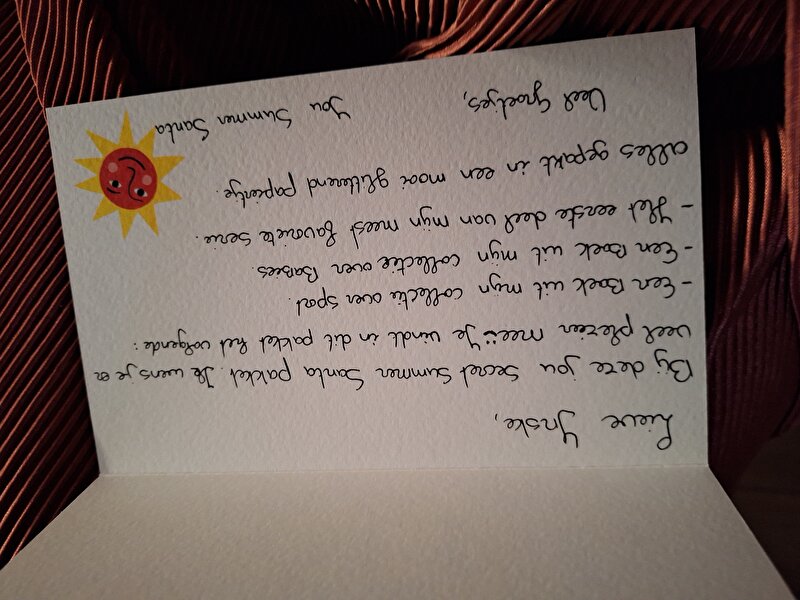 Lieve Ynske,
Bij deze jou Secret Summer Santa pakket. Ik wens je er
veel plezier mee☺ Je vindt in dit pakket het volgende:
- Een Boek uit mijn collectie over Spar.
- Een Boek uit mijn collectie over Babies.
- Het eerste deel van mijn meest favoriete serie.
alles gepakt in een mooi glitterend papiertje.
Veel Groetjes,
You Summer Santa